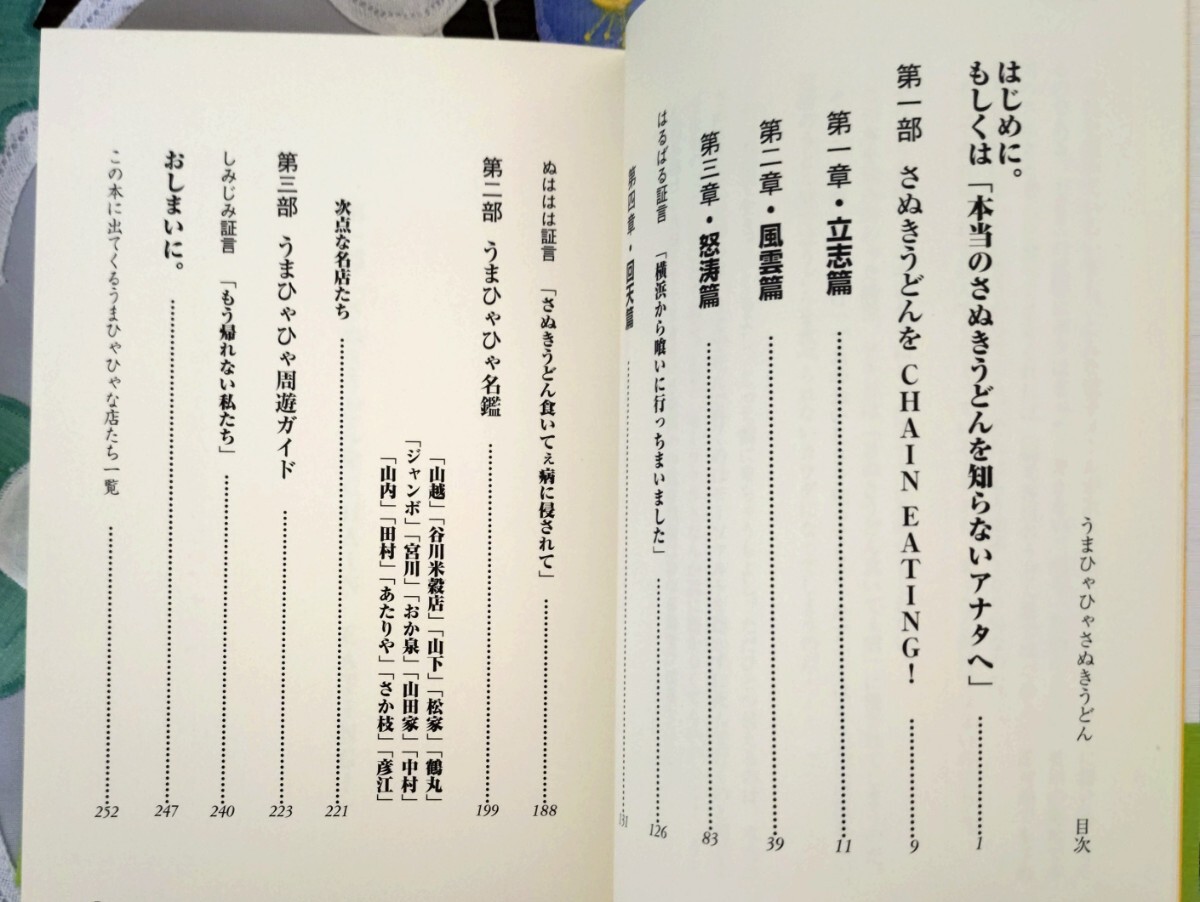 うまひゃひゃさぬきうどん　目次
はじめに。
もしくは「本当のさぬきうどんを知らないアナタへ」……1
第一部　さぬきうどんを CHAIN EATING!……9
第一章・立志篇……11
第二章・風雲篇……39
第三章・怒涛篇……83
はるばる証言　「横浜から喰いに行っちまいました」……126
第四章・回天篇……131
ぬははは証言　「さぬきうどん食いてぇ病に侵されて」……188
第二部　うまひゃひゃ名鑑……199
「山越」「谷川米穀店」「山下」「松家」「鶴丸」
「ジャンボ」「宮川」「おか泉」「山田家」「中村」
「山内」「田村」「あたりや」「さか枝」「彦江」
次点な名店たち……221
第三部　うまひゃひゃ周遊ガイド……223
しみじみ証言　「もう帰れない私たち」……240
おしまいに。……247
この本に出てくるうまひゃひゃな店たち一覧……252